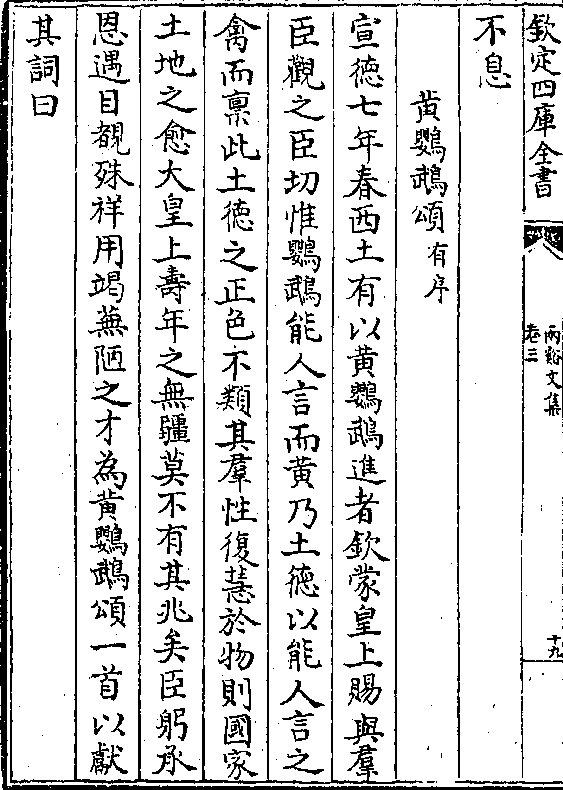 欽定四庫全書
兩谿文集
卷三
十九
不息
黄鸚鵡頌有序
宣徳七年春西土有以黄鸚鵡進者欽蒙皇上賜與羣
臣觀之臣切惟鸚鵡能人言而黄乃土徳以能人言之
禽而稟此土徳之正色不類其羣性復慧於物則國家
土地之愈大皇上壽年之無疆莫不有其兆矣臣躬承
恩遇目覩殊祥用竭蕪陋之才為黄鸚鵡頌一首以獻
其詞曰